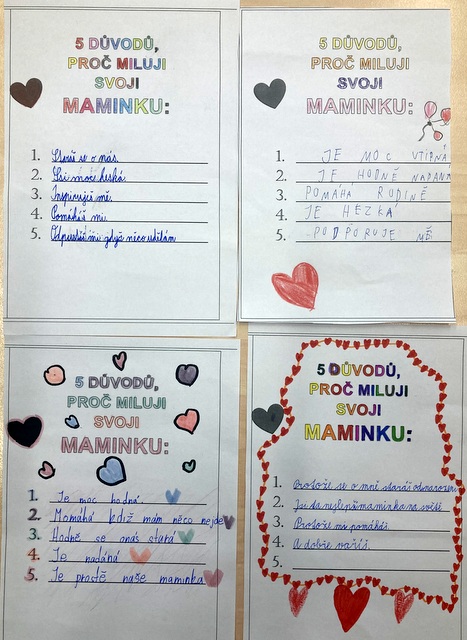 5 DŮVODŮ,
PROČ MILUJI
SVOJI
MAMINKU:
1. Staráš se o nás.
2. Jsi moc hezká.
3. Inspiruješ mě.
4. Pomáháš mi.
5. Odpustíš mi když něco udělám
5 DŮVODŮ,
PROČ MILUJI
SVOJI
MAMINKU:
1. JE MOC VTIPNÁ
2. JE HODNĚ NADANÁ
3. POMÁHÁ RODINĚ
4. JE HEZKÁ
5. PODPORUJE MĚ
5 DŮVODŮ,
PROČ MILUJI
SVOJI
MAMINKU:
1. Je moc hodná.
2. Momáhá když mám něco nejde
3. Hodně se onás stará
4. Je nadáná
5. Je prostě naše maminka
5 DŮVODŮ,
PROČ MILUJI
SVOJI
MAMINKU:
1. Protože se o mně staráš odnarození
2. Jsi ta nejlepší maminka na světě
3. Protože mi pomáháš.
4. A dobře vaříš.
5.